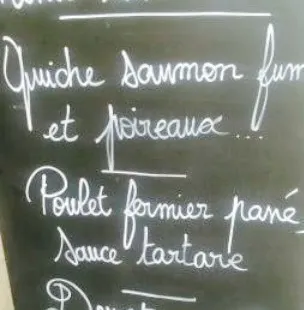 Quiche saumon fum
et poireaux...
Poulet fermier pané,
sauce tartare